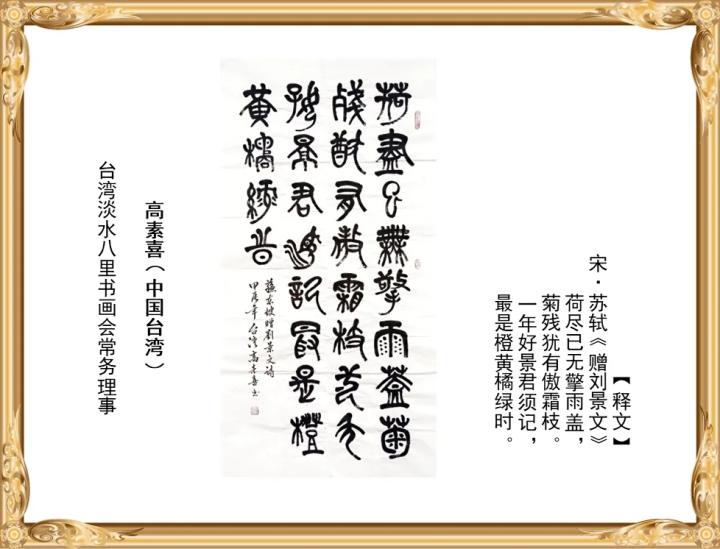 【释文】
宋·苏轼《赠刘景文》
荷尽已无擎雨盖，
菊残犹有傲霜枝。
一年好景君须记，
最是橙黄橘绿时。
荷盡已無擎雨蓋菊
殘猶有傲霜枝一年
好景君須記最是橙
黃橘綠時
蘇東坡贈劉景文詩
甲辰年台灣高素喜书
高素喜（中国台湾）
台湾淡水八里书画会常务理事